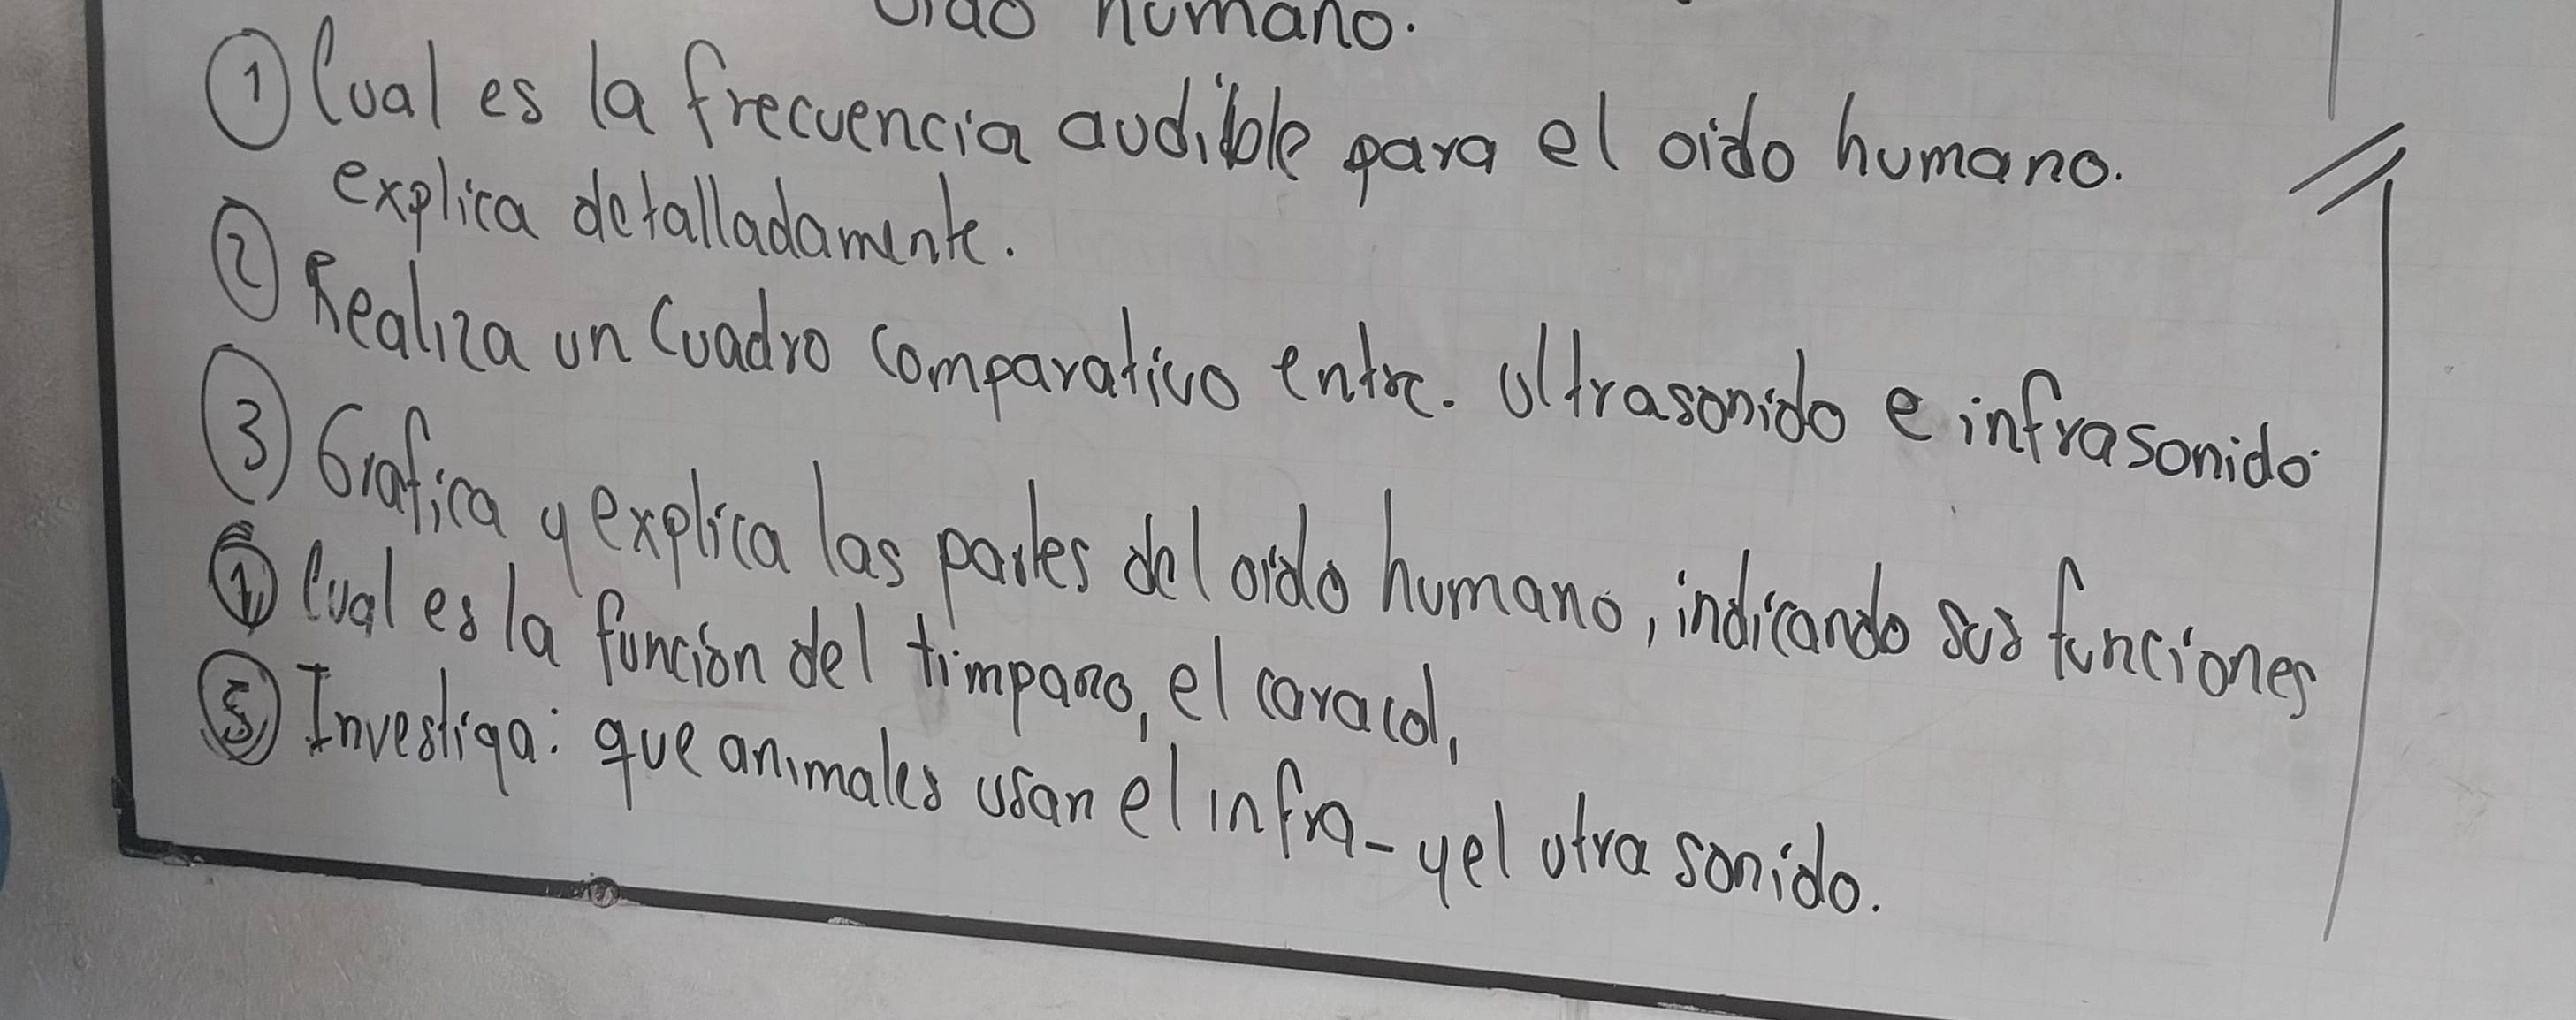 oido humano.
① Cual es la frecuencia audible para el oido humano.
explica detalladamente.
② Realiza un Cuadro comparativo entre. Ultrasonido e infrasonido.
③ Grafica y explica las partes del oido humano, indicando sus funciones
④ Cual es la función del timpano, el caracol,
⑤ Investiga: que animales usan el infra- y el utra sonido.